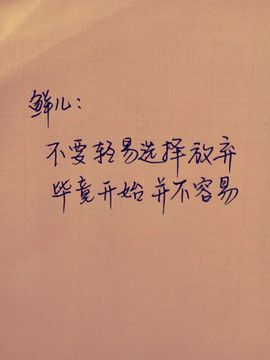 鲜儿：
不要轻易选择放弃
毕竟开始并不容易